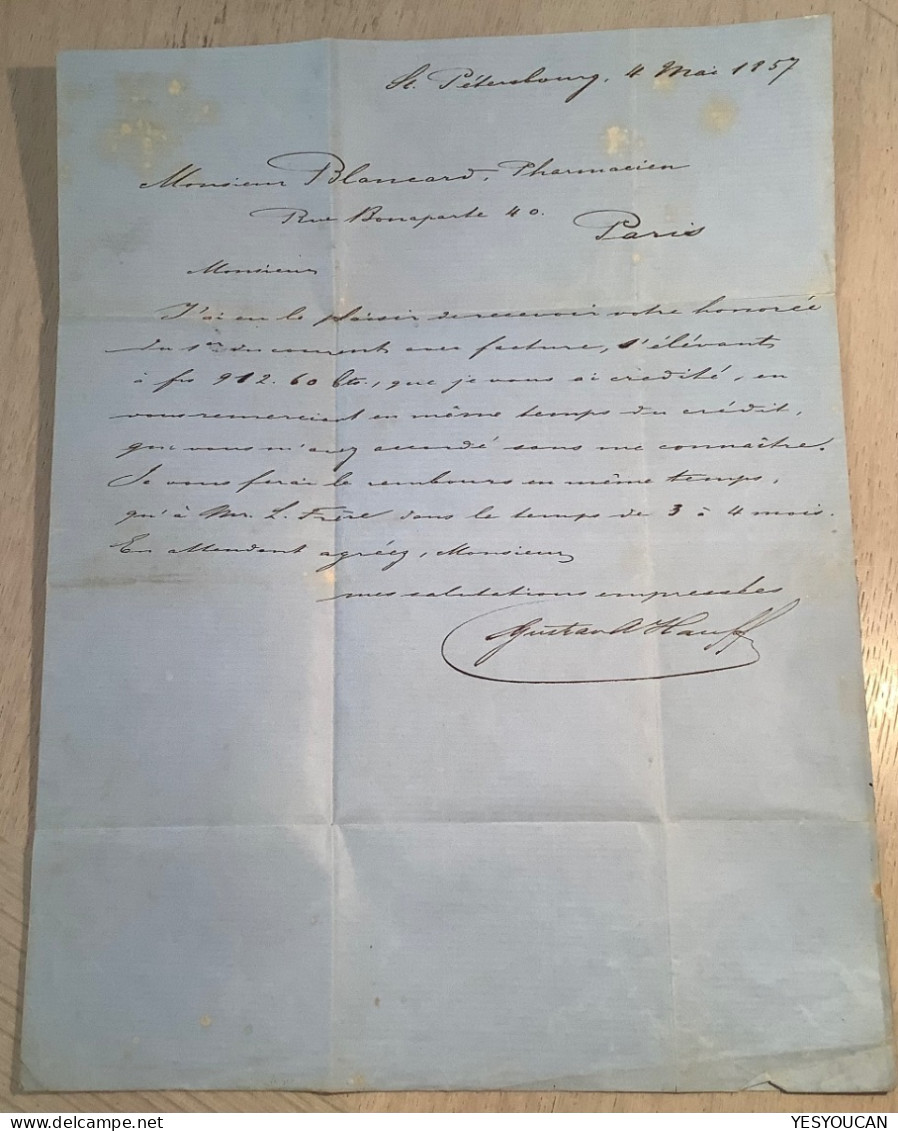 St. Pétersbourg, 4 Mai 1857
Monsieur Blancard, Pharmacien
Rue Bonaparte 40.
Paris
Monsieur
J'ai eu le plaisir de recevoir votre honorée
du 1er du courant avec facture, s'élévants
à frs 912.60 Cts., que je vous ai credité, en
vous remerciant en même temps du crédit,
que vous m'avez accordé sans me connaître.
Je vous ferai le rembours en même temps,
qu'à Mr. L. Frère dans le temps de 3 à 4 mois.
En attendent agréez, Monsieur
mes salutations empressées
Gustav A Hauff
YESYOUCAN